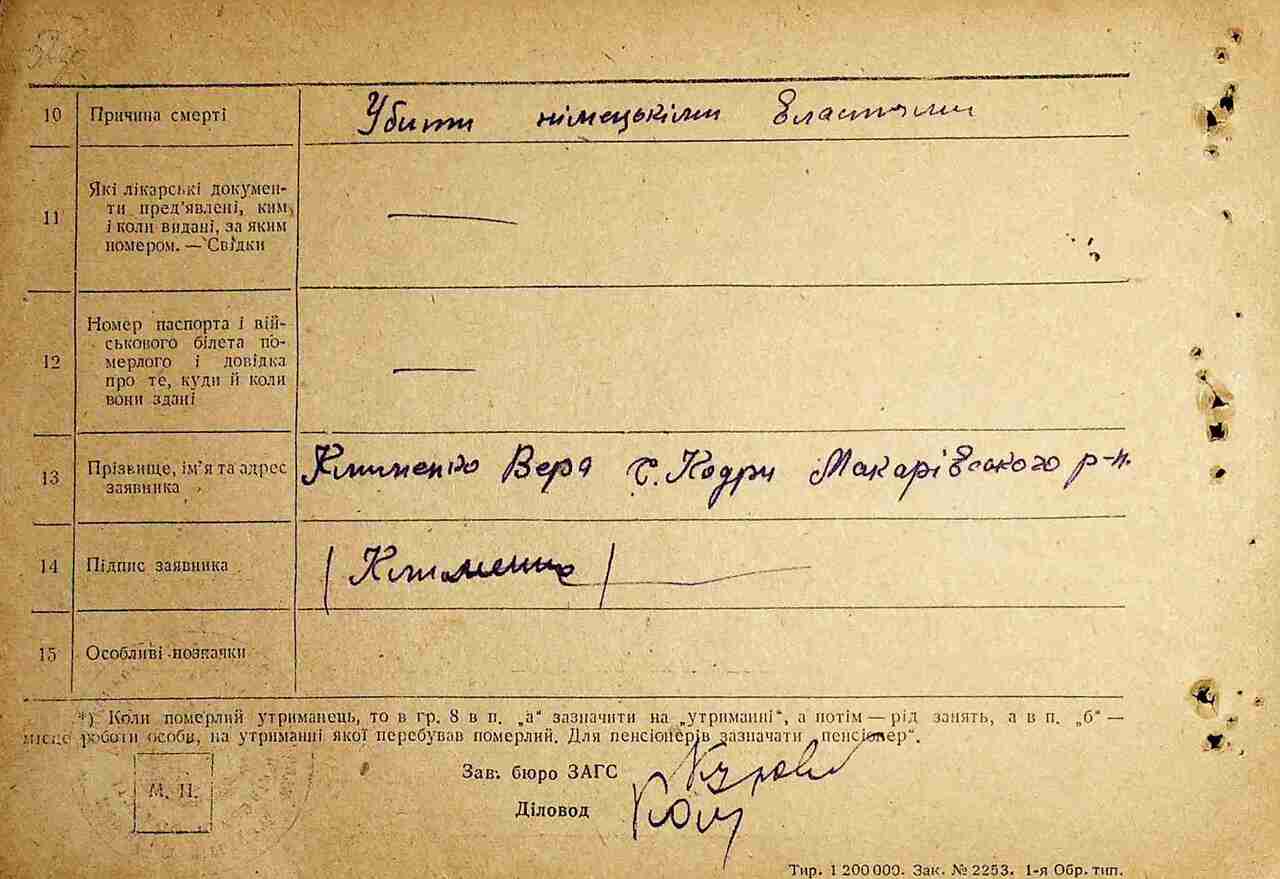 10 Причина смерті Убити німецькіми властями
11 Які лікарські докумен-
ти пред'явлені, ким
і коли видані, за яким
номером. — Свідки —
12 Номер паспорта і вій-
ськового білета по-
мерлого і довідка
про те, куди й коли
вони здані —
13 Прізвище, ім'я та адрес
заявника Клименко Вера с. Кодри Макарівського р-н.
14 Підпис заявника / Клименко /
15 Особливі позначки
*) Коли померлий утриманець, то в гр. 8 в п. „а“ зазначити на „утриманні“, а потім — рід занять, а в п. „б“ —
місце роботи особи, на утриманні якої перебував померлий. Для пенсіонерів зазначати „пенсіонер“.
М. П.
Зав. бюро ЗАГС
Діловод
Тир. 1 200 000. Зак. № 2253. 1-я Обр. тип.